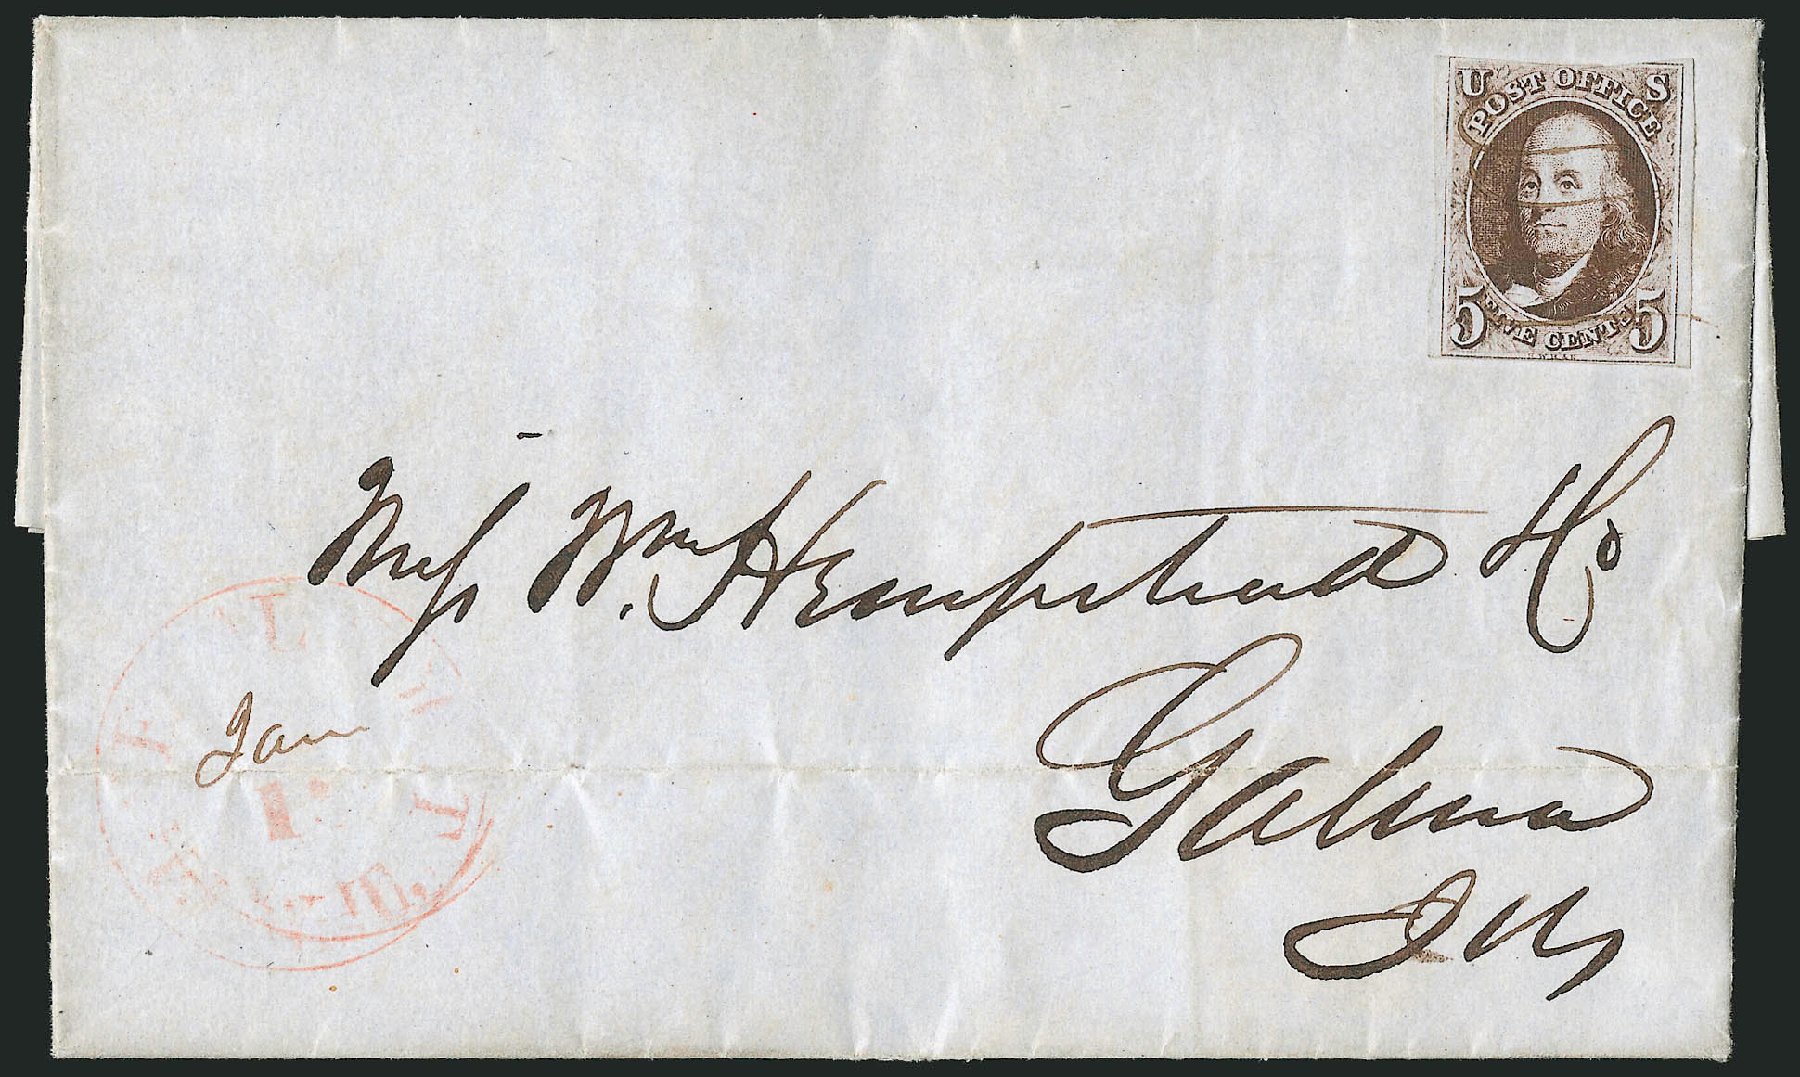 U S
POST OFFICE
5 FIVE CENTS 5
Mess. Wm. Hempstead & Co
Jan
1
Galena
Ills